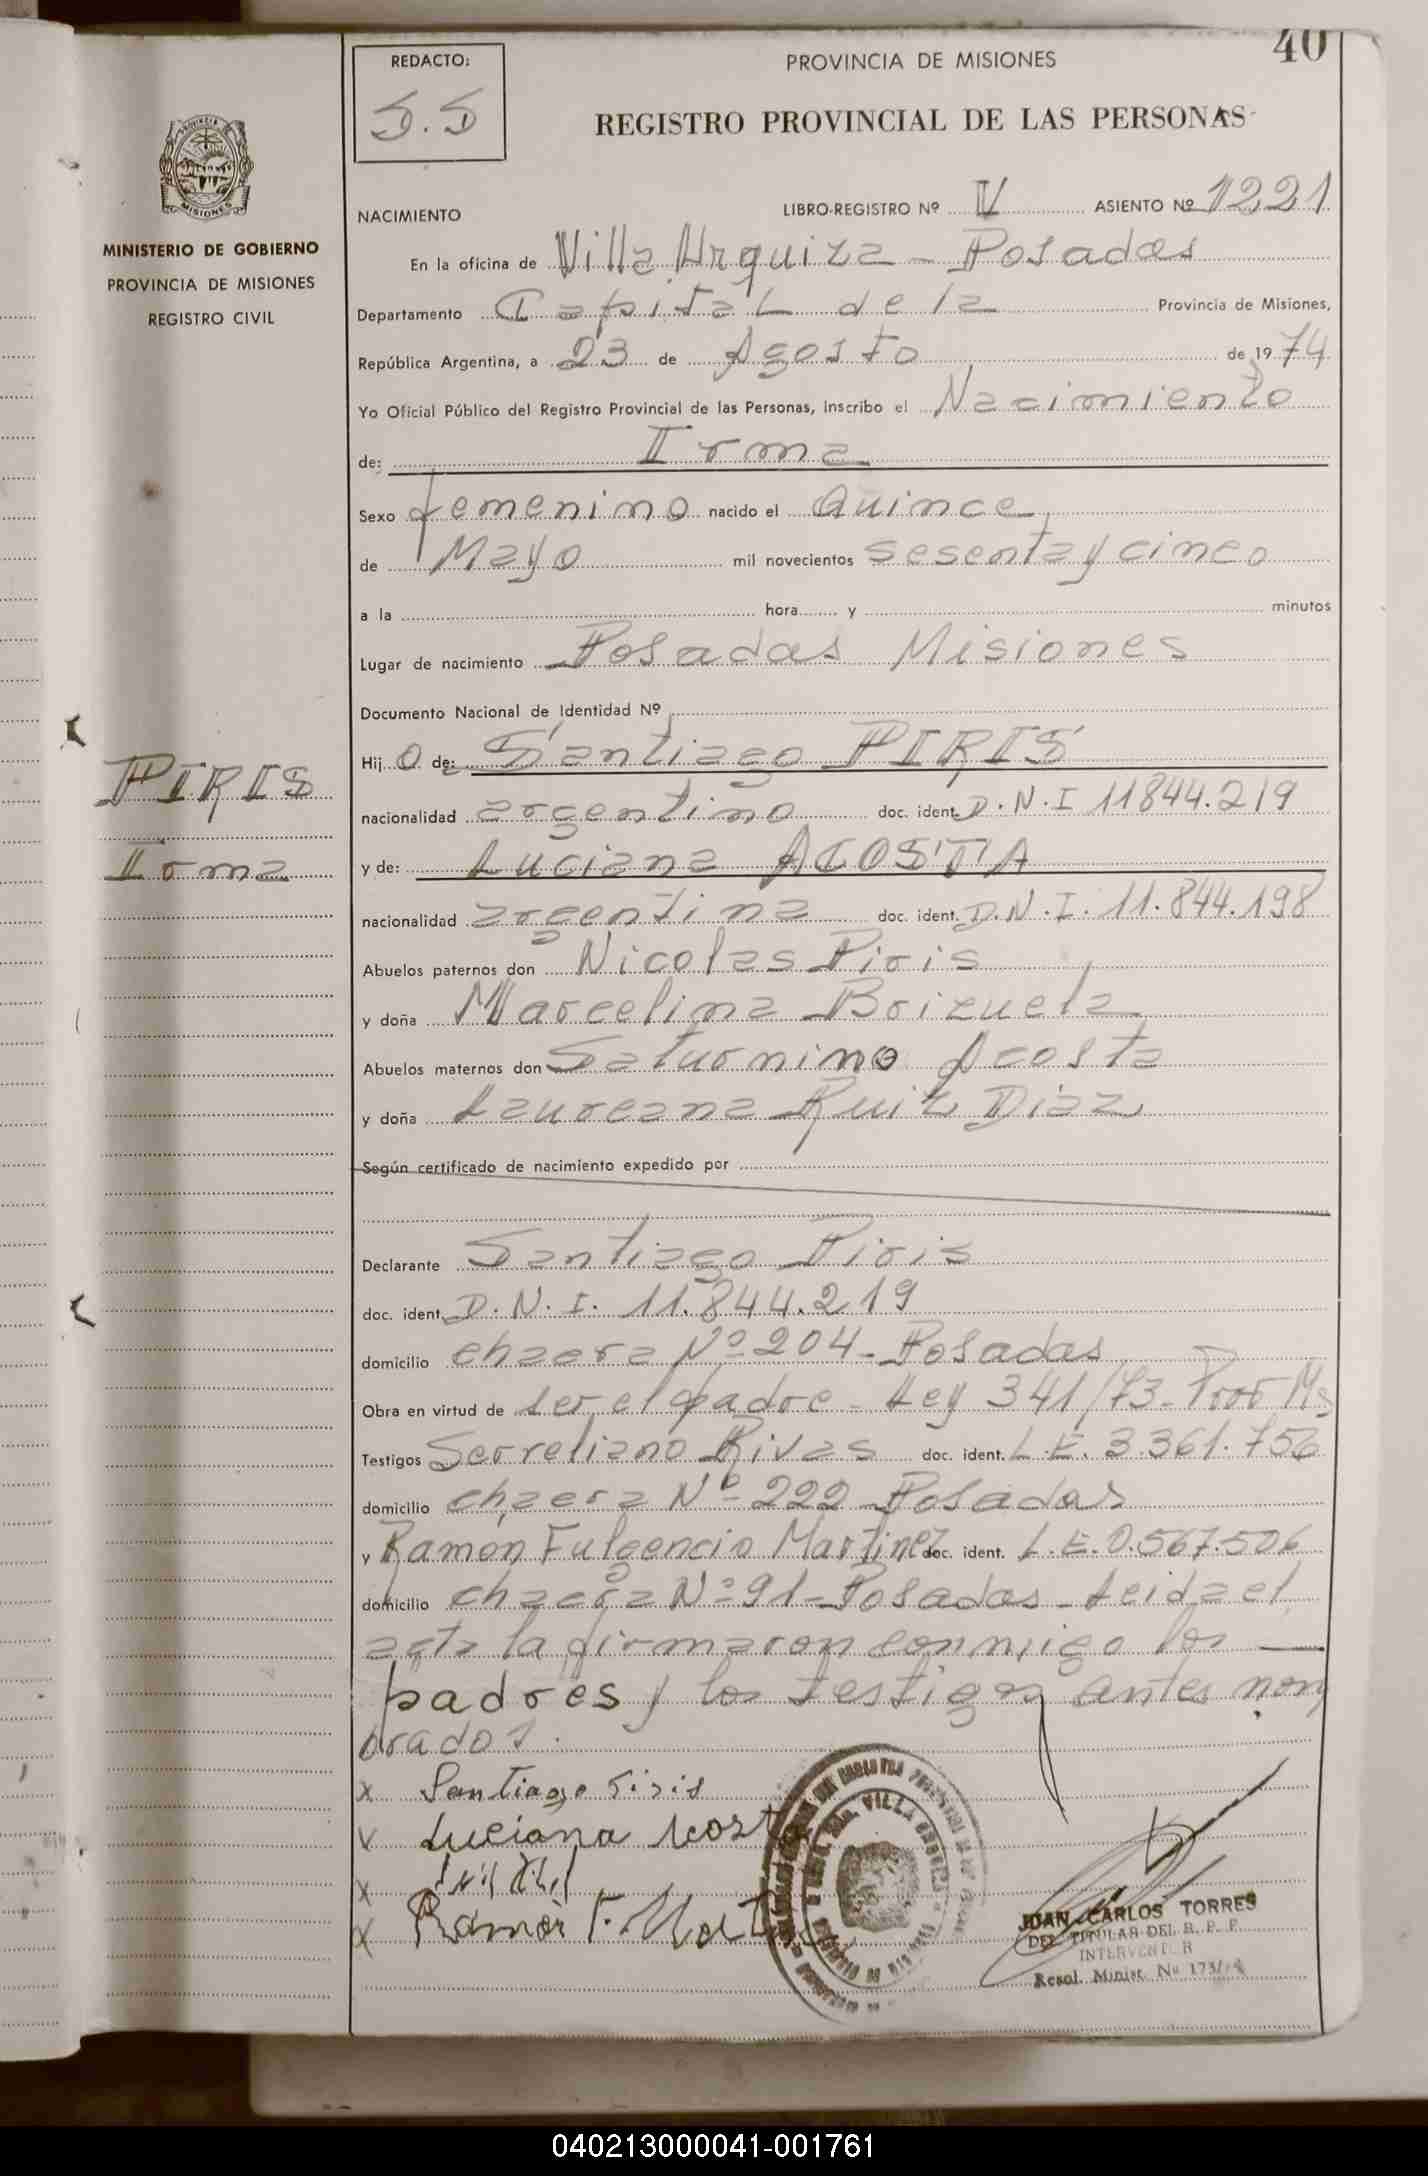 40
REDACTO:
S.S
PROVINCIA DE MISIONES
REGISTRO PROVINCIAL DE LAS PERSONAS
PROVINCIA
MISIONES
MINISTERIO DE GOBIERNO
PROVINCIA DE MISIONES
REGISTRO CIVIL
NACIMIENTO
LIBRO-REGISTRO Nº IV ASIENTO Nº 1221
En la oficina de Villa Urquiza - Posadas
Departamento Capital de la Provincia de Misiones,
República Argentina, a 23 de Agosto de 1974
Yo Oficial Público del Registro Provincial de las Personas, Inscribo el Nacimiento
de: Irma
Sexo femenino nacido el Quince
de Mayo mil novecientos sesentaycinco
a la hora y minutos
Lugar de nacimiento Posadas Misiones
Documento Nacional de Identidad Nº
Hij o de: Santiago PIRIS
PIRIS
nacionalidad argentino doc. ident. D.N.I 11844.219
Irma
y de: Luciana ACOSTA
nacionalidad argentina doc. ident. D.N.I. 11.844.198
Abuelos paternos don Nicolas Piris
y doña Marcelina Brizuela
Abuelos maternos don Saturnino Acosta
y doña Laureana Ruiz Diaz
Según certificado de nacimiento expedido por
Declarante Santiago Piris
doc. ident. D.N.I. 11.844.219
domicilio chacra Nº 204 - Posadas
Obra en virtud de ser el padre - Ley 341/73 -
Testigos Rivas doc. ident. L.E. 3.361.756
domicilio chacra Nº 222 Posadas
y Ramón Fulgencio Martinez doc. ident. L.E. 0.567.506
domicilio chacra Nº 91 - Posadas - Leida el
acta la firmaron conmigo los
padres y los testigos antes nom
brados.
x Santiago Piris
Luciana Acosta
x
x Ramón F. Mart
VILLA URQUIZA
JUAN CARLOS TORRES
DEL. TITULAR DEL R. P. P.
INTERVENTOR
Resol. Minist. Nº 173/74
040213000041-001761